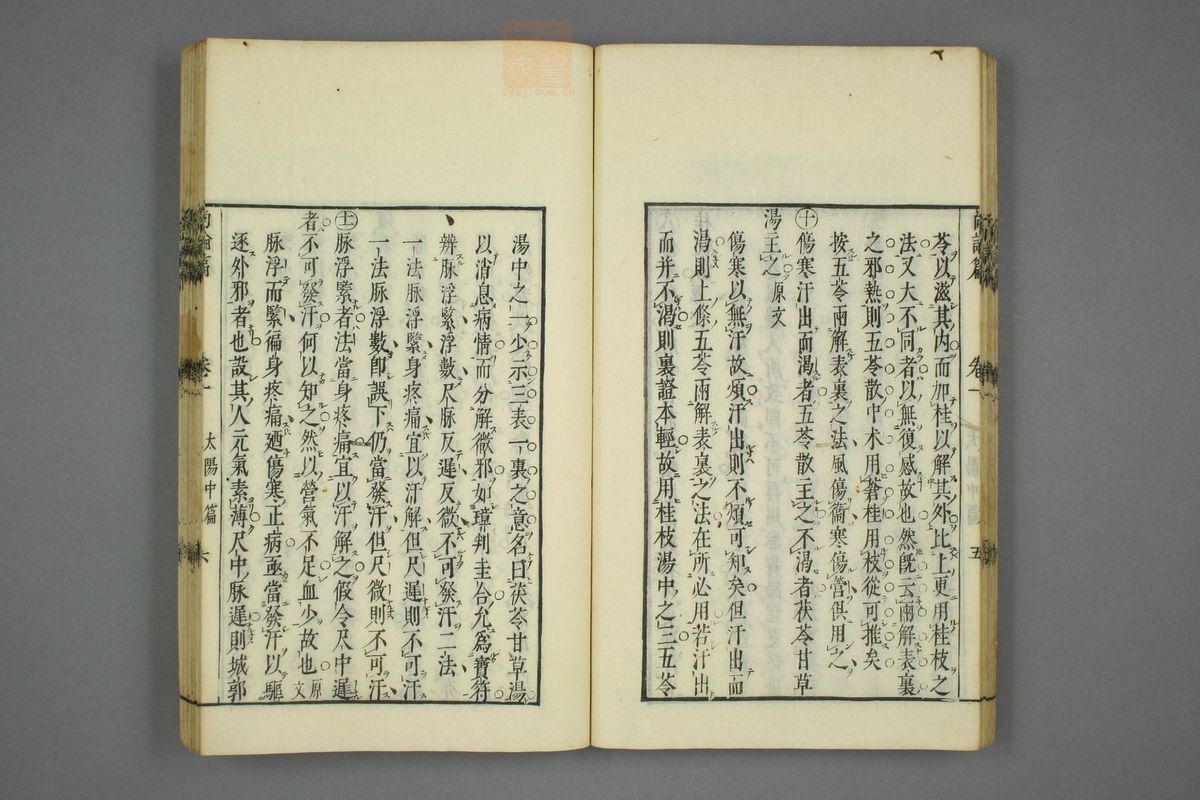 苓以滋其内而加桂以解其外比上更用桂枝之
法又大不同者以無復感故也然既云兩解表裏
之邪熱則五苓散中术用蒼桂用枝從可推矣
按五苓兩解表裏之法風傷衞寒傷營俱用之
㊉傷寒汗出而渴者五苓散主之不渴者茯苓甘草
湯主之原文
傷寒以無汗故煩汗出則不煩可知矣但汗出而
渴則上條五苓兩解表裏之法在所必用若汗出
而并不渴則裏證本輕故用桂枝湯中之三五苓
卷一
太陽中篇
五
湯中之一少示三表一裏之意名曰茯苓甘草湯
以消息病情而分解微邪如璋判圭合允爲寶符
辨脉浮緊浮數尺脉反遲反微不可發汗二法
一法脉浮緊身疼痛宜以汗解但尺遲則不可汗
一法脉浮數即誤下仍當發汗但尺微則不可汗
十一脉浮緊者法當身疼痛宜以汗解之假令尺中遲
者不可發汗何以知之然以營氣不足血少故也原文
脉浮而緊徧身疼痛廼傷寒正病亟當發汗以驅
逐外邪者也設其人元氣素薄尺中脉遲則城郭
尚論篇
卷一
太陽中篇
六